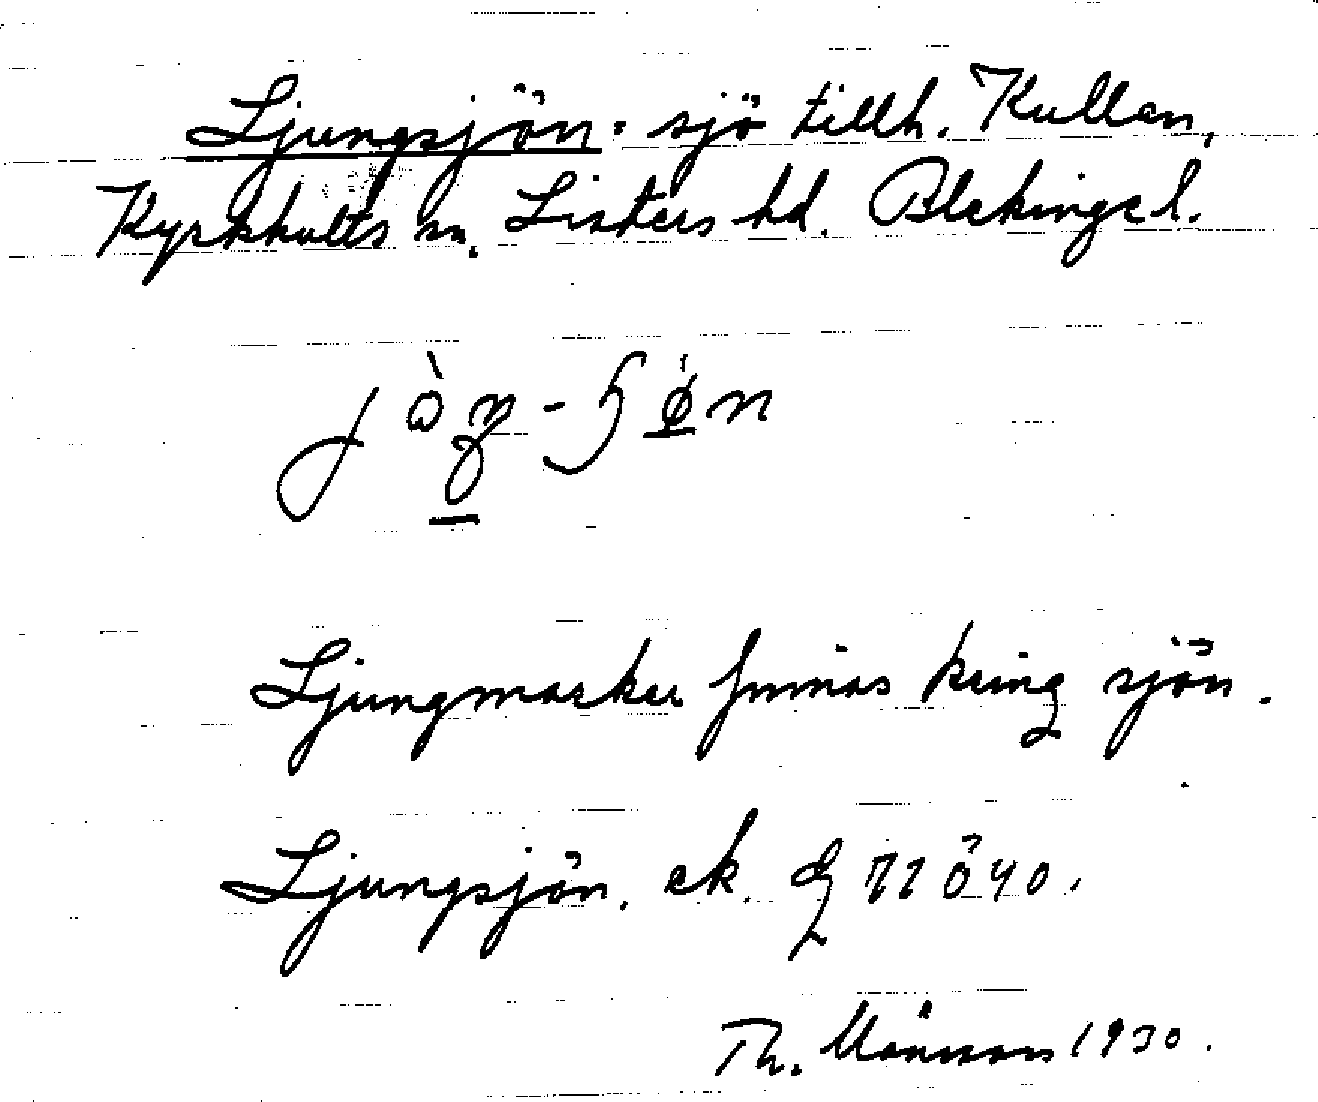 Ljungsjön: sjö tillh. Kullan,
Kyrkhults sn. Listers hd. Blekinge l.
Ljungmarker finnas kring sjön.
Ljungsjön. ek. 72 ö 40.
Th. Månsson 1930.